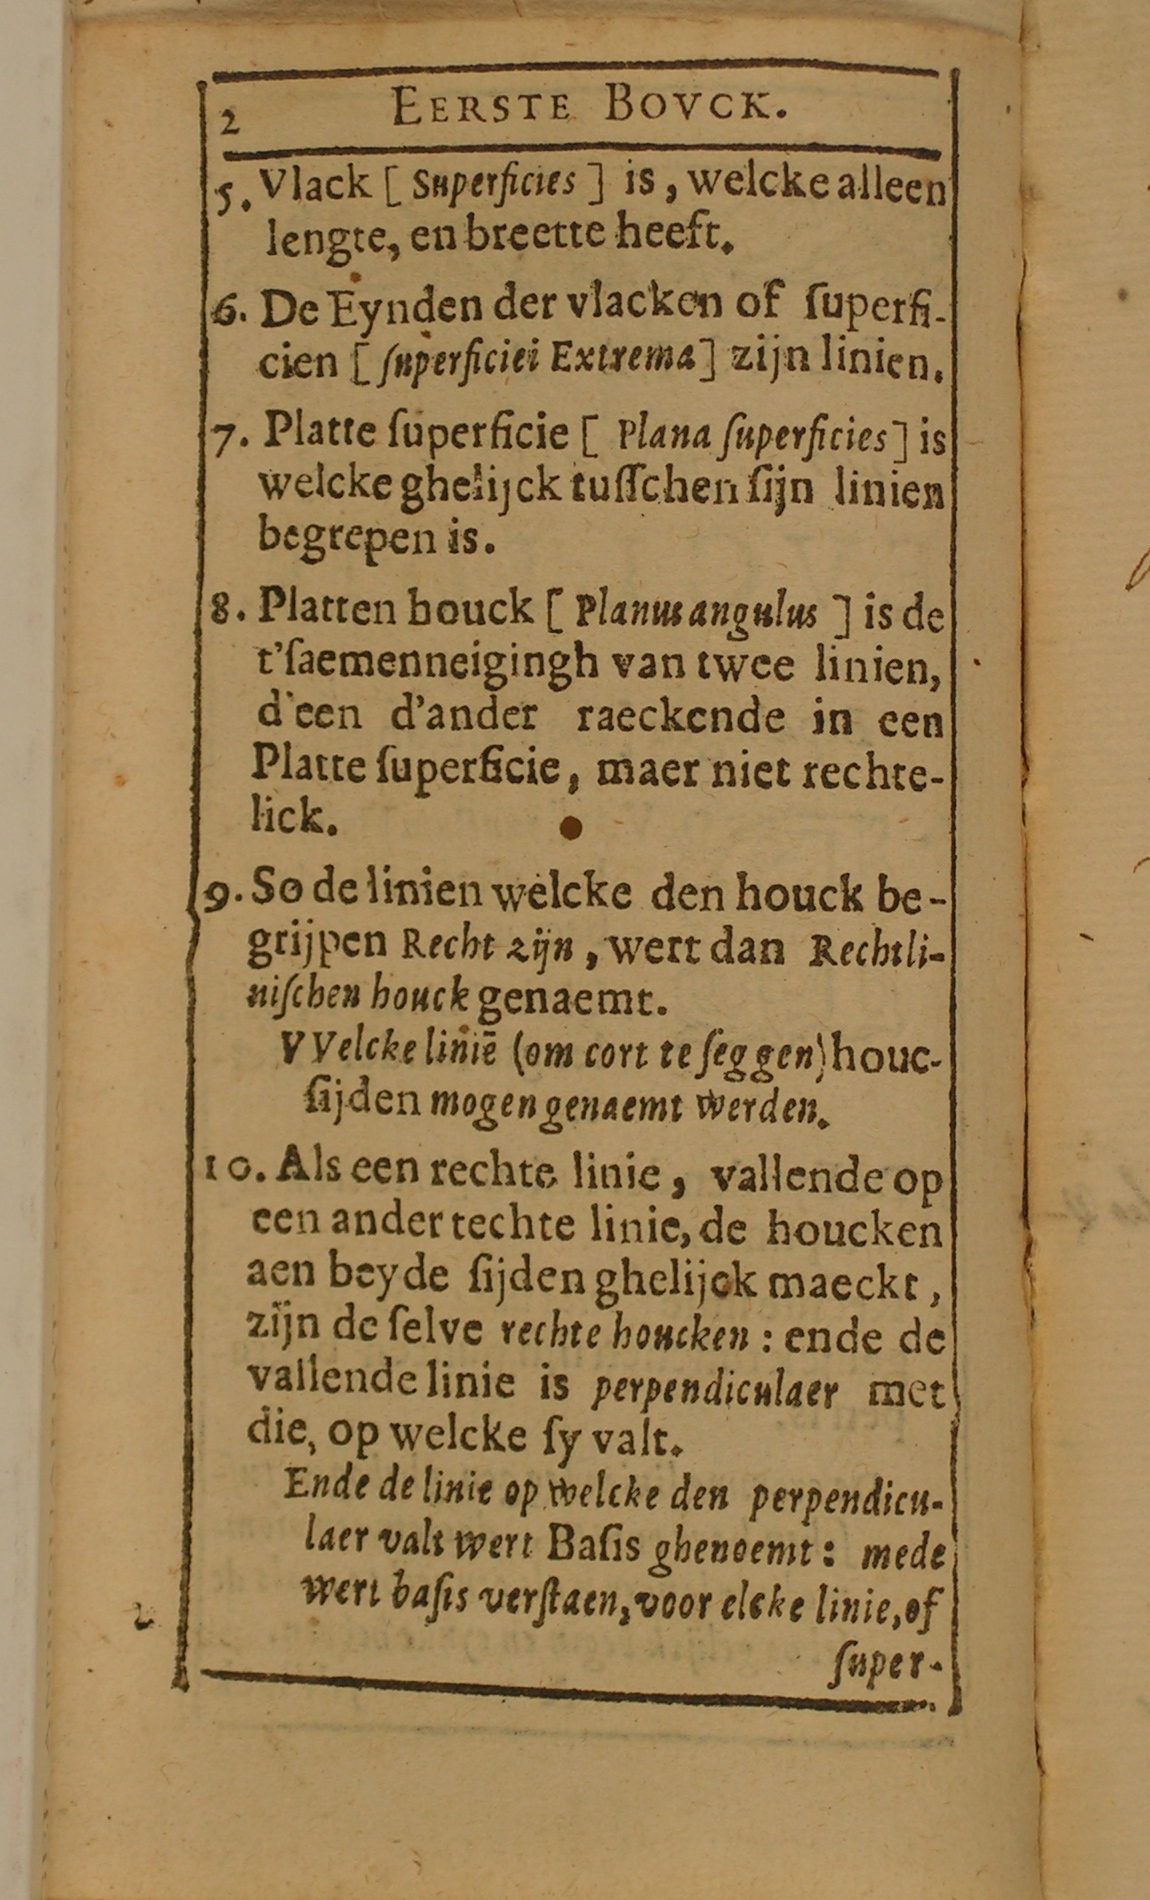 2 EERSTE BOVCK.
5. Vlack [ Superficies ] is, welcke alleen
lengte, en breette heeft.
6. De Eynden der vlacken of ſuperfi-
cien [ ſuperficiei Extrema ] zijn linien.
7. Platte ſuperficie [ Plana ſuperficies ] is
welcke ghelijck tuſſchen ſijn linien
begrepen is.
8. Platten houck [ Planus angulus ] is de
t'ſaemenneigingh van twee linien,
d'een d'ander raeckende in een
Platte ſuperficie, maer niet rechte-
lick.
9. So de linien welcke den houck be-
grijpen Recht zijn, wert dan Rechtli-
niſchen houck genaemt.
VVelcke linië (om cort te ſeggen) houc-
ſijden mogen genaemt werden.
10. Als een rechte linie, vallende op
een ander rechte linie, de houcken
aen beyde ſijden ghelijck maeckt,
zijn de ſelve rechte houcken: ende de
vallende linie is perpendiculaer met
die, op welcke ſy valt.
Ende de linie op welcke den perpendicu-
laer valt wert Baſis ghenoemt: mede
wert baſis verſtaen, voor elcke linie, of
ſuper-